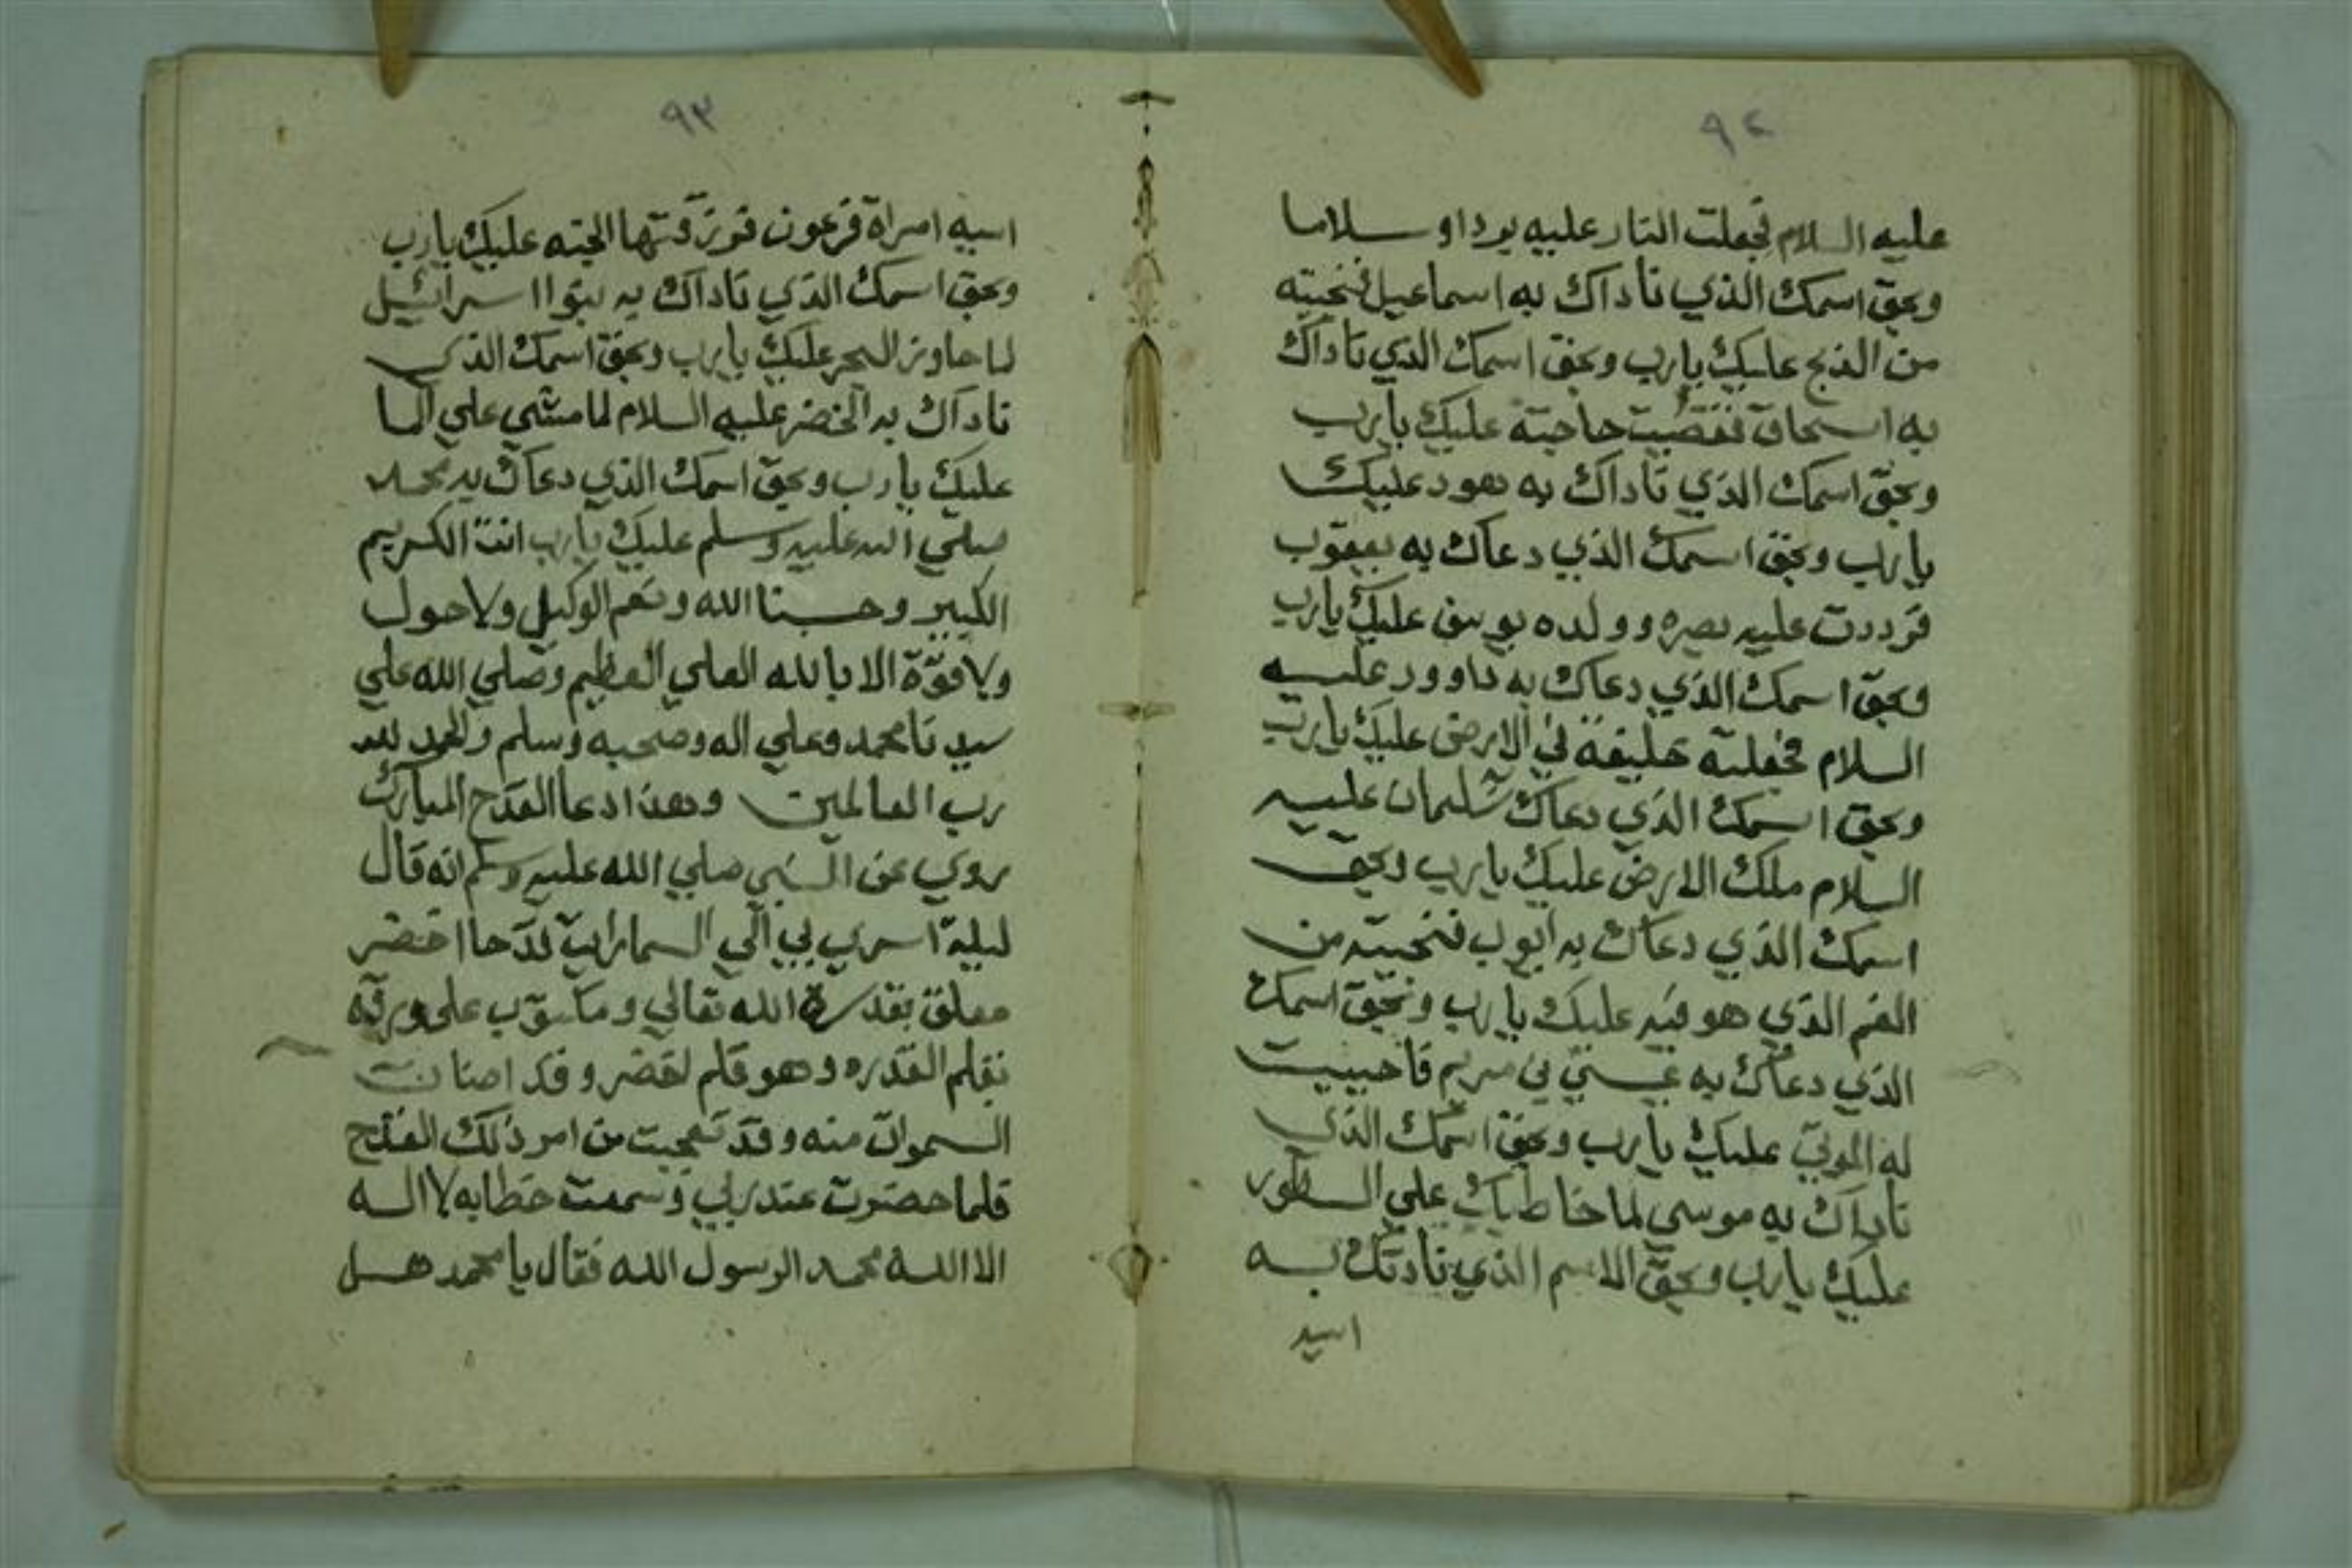 ٩٤
عليه السلام فجعلت النار عليه بردا و سلاما
وبحق اسمك الذي ناداك به اسماعيل فنجيته
من الذبح عليك يا رب وبحق اسمك الذي ناداك
به اسحاق فقضيت حاجته عليك يا رب
وبحق اسمك الذي ناداك به هود عليك
يا رب وبحق اسمك الذي دعاك به يعقوب
فرددت عليه بصره وولده يوسف عليك يا رب
وبحق اسمك الذي دعاك به داوود عليه
السلام فجعلته خليفة في الارض عليك يا رب
وبحق اسمك الذي دعاك سليمان عليه
السلام ملك الارض عليك يا رب وبحق
اسمك الذي دعاك به ايوب فنجيته من
الغم الذي هو فيه عليك يا رب وبحق اسمك
الذي دعاك به عيسي بن مريم فاحييت
له الموتي عليك يا رب وبحق اسمك الذي
ناداك به موسي لما خاطبك علي الطور
عليك يا رب وبحق الاسم الذي نادتك به
اسيه
٩٣
اسيه امراة فرعون فوزقتها الجنه عليك يا رب
وبحق اسمك الذي ناداك به بنوا اسرائيل
لما جاوز البحر عليك يا رب وبحق اسمك الذي
ناداك به الخضر عليه السلام لما مشي علي الما
عليك يا رب وبحق اسمك الذي دعاك به محمد
صلي الله عليه وسلم عليك يا رب انت الكريم
الكبير وحسبنا الله ونعم الوكيل ولا حول
ولا قوة الا بالله العلي العظيم وصلي الله علي
سيدنا محمد وعلي اله وصحبه وسلم والحمد لله
رب العالمين وهذا دعا القدح المبارك
روي عن النبي صلي الله عليه وسلم انه قال
ليلة اسري بي الي السما رايت قدحا اخضر
معلق بقدرة الله تعالي ومكتوب على ورقه
بقلم القدره وهو قلم اخضر وقد اضات
السموات منه وقد تعجبت من امر ذلك القدح
فلما حضرت عند ربي وسمعت خطابه لا اله
الا الله محمد الرسول الله فقال يا محمد هل